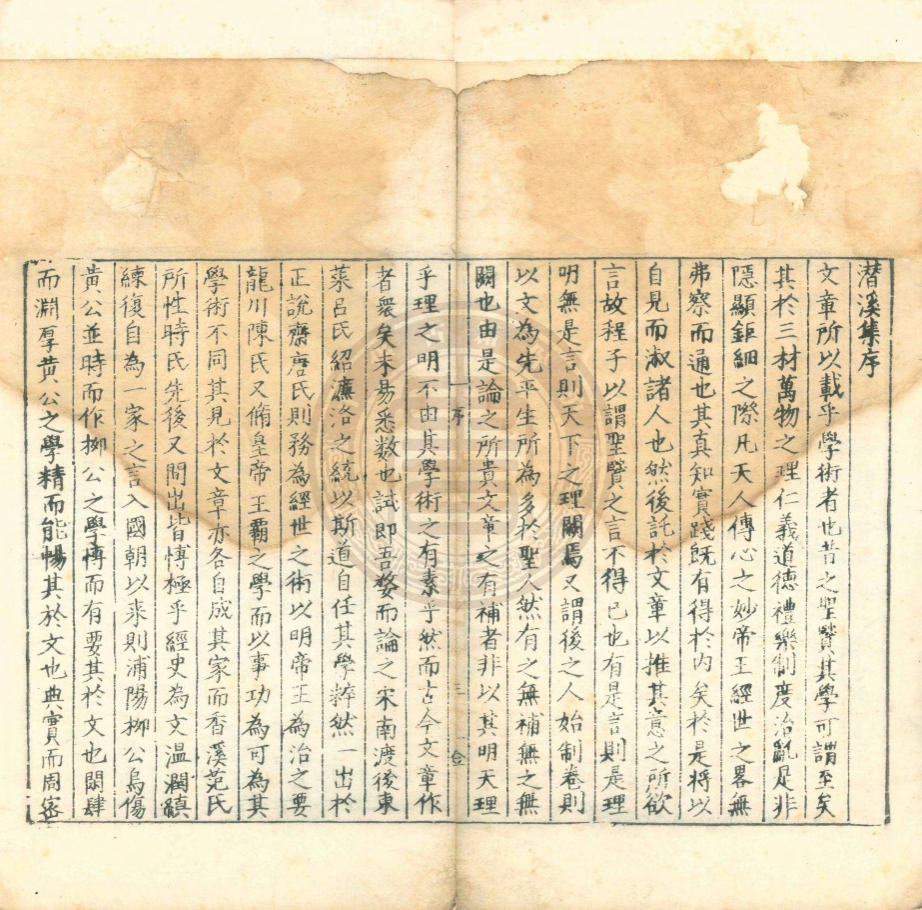 潛溪集序
文章所以載乎學術者也昔之聖贒其學可謂至矣
其於三材萬物之理仁義道德禮樂制度治亂是非
隱顯鉅細之際凡天人傳心之妙帝王經世之畧無
弗察而通也其真知實踐旣有得於內矣於是將以
自見而淑諸人也然後託於文章以推其意之所欲
言故程子以謂聖贒之言不得已也有是言則是理
明無是言則天下之理闕焉又謂後之人始制卷則
以文為先平生所為多於聖人然有之無補無之無
闕也由是論之所貴文章之有補者非以其明天理
序
三
乎理之明不由其學術之有素乎然而古今文章作
者衆矣未易悉數也試即吾婺而論之宋南渡後東
萊呂氏紹濂洛之統以斯道自任其學粹然一出於
正說齋唐氏則務為經世之術以明帝王為治之要
龍川陳氏又脩皇帝王霸之學而以事功為可為其
學術不同其見於文章亦各自成其家而香溪范氏
所性時氏先後又間出皆博極乎經史為文温潤縝
練復自為一家之言入國朝以来則浦陽栁公烏傷
黃公並時而作栁公之學博而有要其於文也閎肆
而淵厚黃公之學精而能暢其於文也典實而周宻